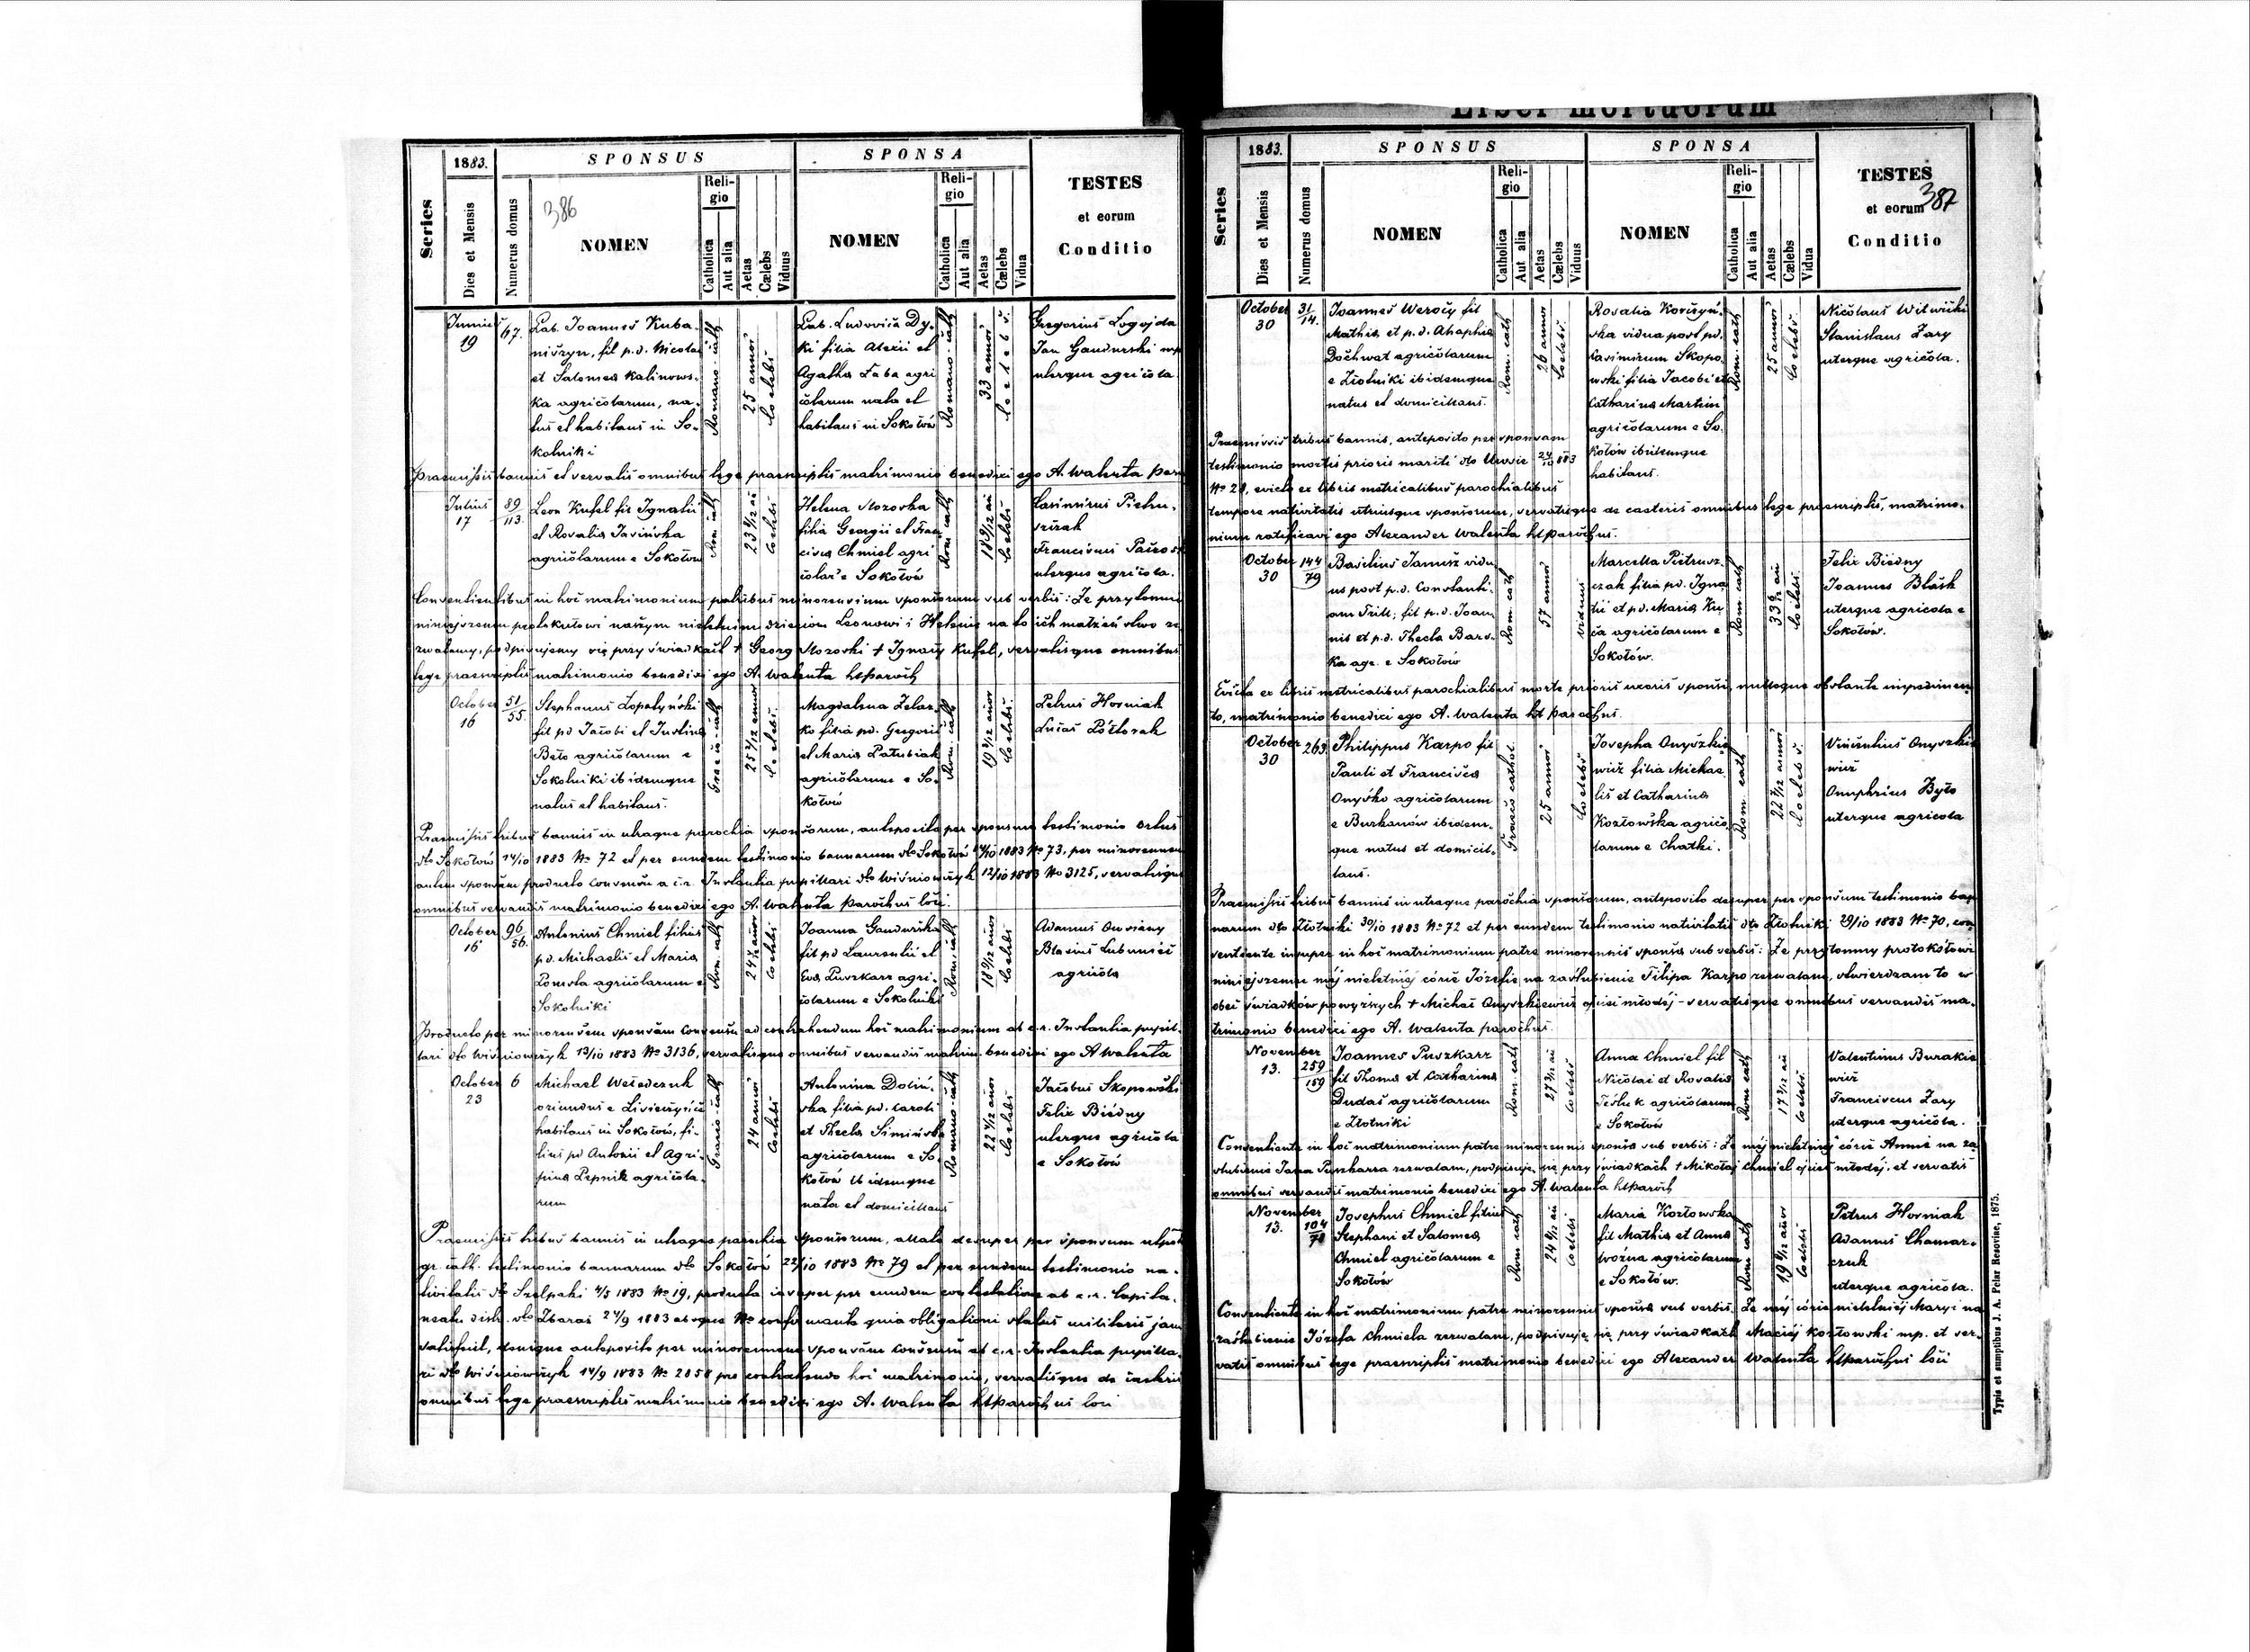 1883.
SPONSUS
SPONSA
Series
Dies et Mensis
Numerus domus
386
NOMEN
Religio
Catholica
Aut alia
Aetas
Cælebs
Viduus
NOMEN
Religio
Catholica
Aut alia
Aetas
Cælebs
Vidua
TESTES
et eorum
Conditio
Junius
19
67.
Lab. Joannes Kuba-
niszyn, fil p.d. Nicolai
et Salomea Kalinows-
ka agricolarum, na-
tus et habitans in So-
kolniki
Romano-cath
25 annor
Coelebs
Lab. Ludovica Dy-
ki filia Alexii et
Agatha Łaba agri
colarum nata et
habitans in Sokołów
Romano-cath
33 annor
Coelebs.
Gregorius Logojda
Jan Gandurski mp
uterque agricola.
Praemissis bannis et servatis omnibus lege praescriptis matrimonio benedixi ego A. Walenta par
Julius
17
89
113.
Leon Kufel fil Ignatii
et Rosalia Jasińska
agricolarum e Sokołów
Rom cath
Coelebs
Helena Mozoska
filia Georgii et Fran
cisca Chmiel agri
colar e Sokołów
Rom cath
Coelebs
Casimirus Pietru-
szczak
Franciscus
uterque agricola.
Consentientibus in hoc matrimonium patribus minorennium sponsorum sub verbis: Że przytomni
niniejszemu protokółowi naszym nieletnim dzieciom Leonowi i Helenie na to ich małżeństwo ze
zwalamy, podpisujemy się przy świadkach + Georg Mozoski + Ignacy Kufel, servatisque omnibus
lege praescriptis matrimonio benedixi ego A. Walenta ltparoch
October
16
51
55.
Stephanus Łopatyński
fil pd Jacobi et Justina
Beło agricolarum e
Sokolniki ibidemque
natus et habitans.
Graeco-cath
Coelebs.
Magdalena Żelaz-
ko filia pd. Gregorii
et Maria Patubiak
agricolarum e So-
kołów
Rom cath
Coelebs.
Petrus Horniak
Lucas Półtorak
Praemissis tribus bannis in utraque parochia sponsorum, anteposito per sponsum testimonio ortus
dto Sokołów 14/10 1883 No 72 et per eundem testimonio bannorum dto Sokołów 14/10 1883 No 73, per minorennem
autem sponsam producto consensu a c.r. Instantia pupillari dto Wiśniowczyk 12/10 1883 No 3125, servatisque
omnibus servandis matrimonio benedixi ego A. Walenta parochus loci.
October
16
96
56.
Antonius Chmiel filius
p.d. Michaelis et Maria
Pomsta agricolarum e
Sokolniki
Rom. cath
Coelebs
Joanna Gandurska
fil pd Laurentii et
Eva Puszkarz agri-
colarum e Sokolniki
Rom. cath
Coelebs
Adamus Owsiany
Blasius
agricola
Producto per minorennem sponsam consensu ad contrahendum hoc matrimonium ab c.r. Instantia pupil-
lari dto Wiśniowczyk 13/10 1883 No 3136, servatisque omnibus servandis matrim. benedixi ego A Walenta
October
23
6
Michael
oriundus e
habitans in Sokołów, fi-
lius pd Antonii et Agri-
pina Lepnik agricola-
rum
Graeco-cath
24 annor
Coelebs
Antonina Doliń-
ska filia pd. Caroli
et Thecla Simińska
agricolarum e So-
kołów ibidemque
nata et domicilians
Romano-cath
Coelebs
Jacobus Skopowski
Felix Biedny
uterque agricola
e Sokołów
Praemissis tribus bannis in utraque parochia sponsorum, allato desuper per sponsum utpote
gr. cath. testimonio bannorum dto Sokołów 22/10 1883 No 79 et per eundem testimonio na-
tivitatis dto Szelpaki 4/5 1883 No 19, producta insuper per eundem contestatione ab c.r. Capita-
neatu distr. dto Zbaraż 24/9 1883 absque No confirmante quia obligationi status militaris jam
satisfecit, denique anteposito per minorennem sponsam consensu ab c.r. Instantia pupilla-
ri dto Wiśniowczyk 14/9 1883 No 2858 pro contrahendo hoc matrimonio, servatisque de caeteris
omnibus lege praescriptis matrimonio benedixi ego A. Walenta ltparochus loci
Liber mortuorum
1883.
SPONSUS
SPONSA
Series
Dies et Mensis
Numerus domus
NOMEN
Religio
Catholica
Aut alia
Aetas
Cælebs
Viduus
NOMEN
Religio
Catholica
Aut alia
Aetas
Cælebs
Vidua
TESTES
et eorum
Conditio
387
October
30
31
14.
Joannes Werocy fil
Mathia et p.d. Ahaphia
Dochwat agricolarum
e Złotniki ibidemque
natus et domicilians.
Rom. cath
26 annor
Coelebs.
Rosalia Korczyń-
ska vidua post pd.
Casimirum Skopo-
wski filia Jacobi et
Catharina Martin
agricolarum e So-
kołów ibidemque
habitans.
Rom. cath
25 annor
Coelebs.
Nicolaus Witwicki
Stanislaus Żary
uterque agricola.
Praemissis tribus bannis, anteposito per sponsam
testimonio mortis prioris mariti dto 24/10 883
No 28, evicto ex libris metricalibus parochialibus
tempore nativitatis utriusque sponsorum, servatisque de caeteris omnibus lege praescriptis, matrimo-
nium ratificavi ego Alexander Walenta ltparochus.
October
30
144
79
Basilius Janusz vidu
us post p.d. Constanti-
am Trill; fil p.d. Joan
nis et p.d. Thecla Bars-
ka agr. e Sokołów
Rom. cath
57 annor
viduus
Marcella Pietrusz-
czak filia pd. Igna
tii et p.d. Maria Ku
ca agricolarum e
Sokołów.
Rom cath
Coelebs.
Felix Biedny
Joannes Błaśk
uterque agricola e
Sokołów.
Evicta ex libris metricalibus parochialibus morte prioris uxoris sponsi, nulloque obstante impedimen-
to, matrimonio benedixi ego A. Walenta lt parochus.
October
30
263.
Philippus Karpo fil
Pauli et Francisca
Onyśko agricolarum
e Burkanów ibidem-
que natus et domicil-
ians.
Graeco cathol.
25 annor
Coelebs
Josepha Onyszkie
wicz filia Michae
lis et Catharina
Kozłowska agrico-
larum e Chatki.
Rom. cath
Coelebs.
Vincentius Onyszkie
wicz
Onuphrius Byto
uterque agricola
Praemissis tribus bannis in utraque parochia sponsorum, anteposito desuper per sponsum testimonio ban
norum dto Złotniki 30/10 1883 No 72 et per eundem testimonio nativitatis dto Złotniki 29/10 1883 No 70, con-
sentiente insuper in hoc matrimonium patre minorennis sponsa sub verbis: Że przytomny protokołowi
niniejszemu méj nieletniéj córce Józefie na zaślubienie Filipa Karpo zezwalam, stwierdzam to w
obec świadków powyższych + Michał Onyszkiewicz ojciec młodéj - servatisque omnibus servandis ma-
trimonio benedixi ego A. Walenta parochus.
November
13.
259
159
Joannes Puszkarz
fil Thoma et Catharina
Dudaś agricolarum
e Złotniki
Rom. cath
Coelebs
Anna Chmiel fil
Nicolai et Rosalia
agricolarum
e Sokołów
Rom cath
Coelebs.
Valentinus Burakie
wicz
Franciscus Żary
uterque agricola.
Consentiente in hoc matrimonium patre minorennis sponsa sub verbis: Że méj nieletniéj córce Annie na za-
ślubienie Jana Puszkarza zezwalam, podpisuję się przy świadkach + Mikołaj Chmiel ojciec młodéj. et servatis
omnibus servandis matrimonio benedixi ego A. Walenta ltparoch
November
13.
104
78
Josephus Chmiel filius
Stephani et Salomea
Chmiel agricolarum e
Sokołów
Rom cath
Coelebs
Maria Kozłowska
fil Mathia et Anna
Woźna agricolarum
e Sokołów.
Rom cath
Coelebs
Petrus Horniak
Adamus Chamar-
czuk
uterque agricola.
Consentiente in hoc matrimonium patre minorennis sponsa sub verbis. Że méj córce nieletniéj Maryi na
zaślubienie Józefa Chmiela zezwalam, podpisuję się przy świadkach Maciéj Kozłowski mp. et ser-
vatis omnibus lege praescriptis matrimonio benedixi ego Alexander Walenta ltparochus loci
Typis et sumptibus J. A. Pelar Resoviae, 1875.